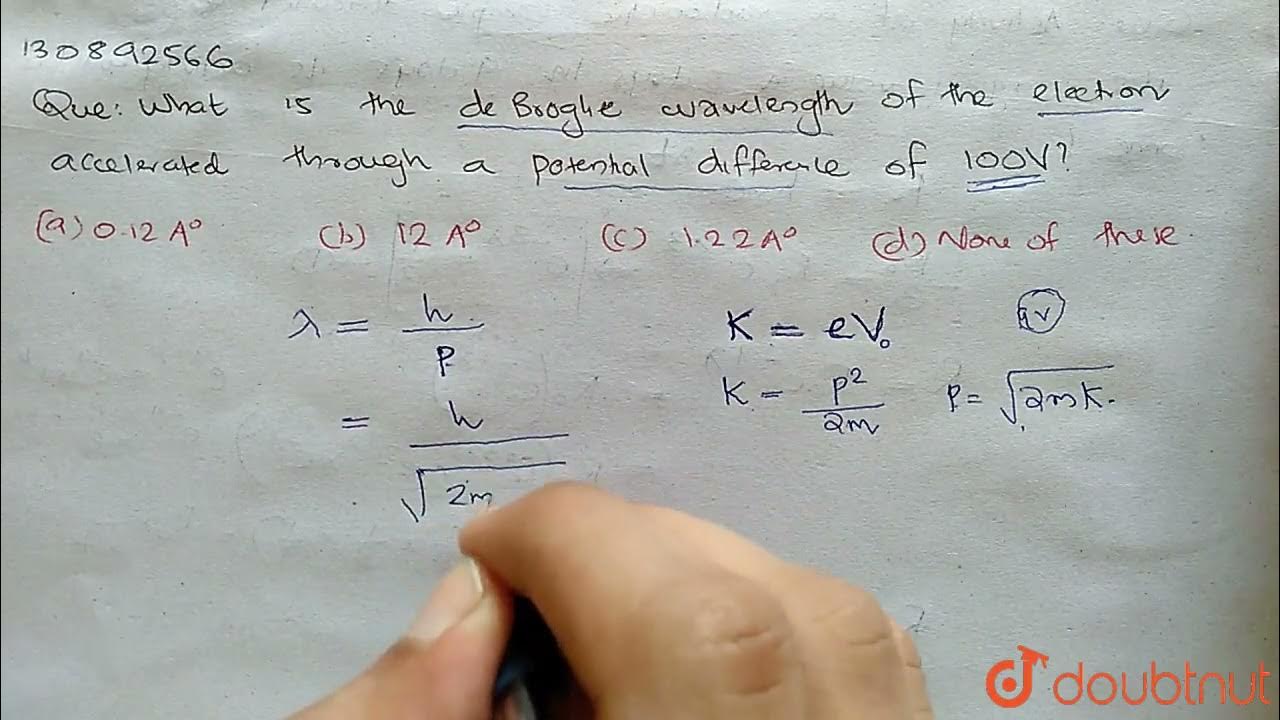 130892566
Que: What is the de Broglie wavelength of the electron
accelerated through a potential difference of 100V?
(a) 0.12 A° (b) 12 A° (c) 1.22 A° (d) None of these.
λ = h/P K = eV₀ qv
= h/√2m K = P²/2m P = √2mK.
doubtnut